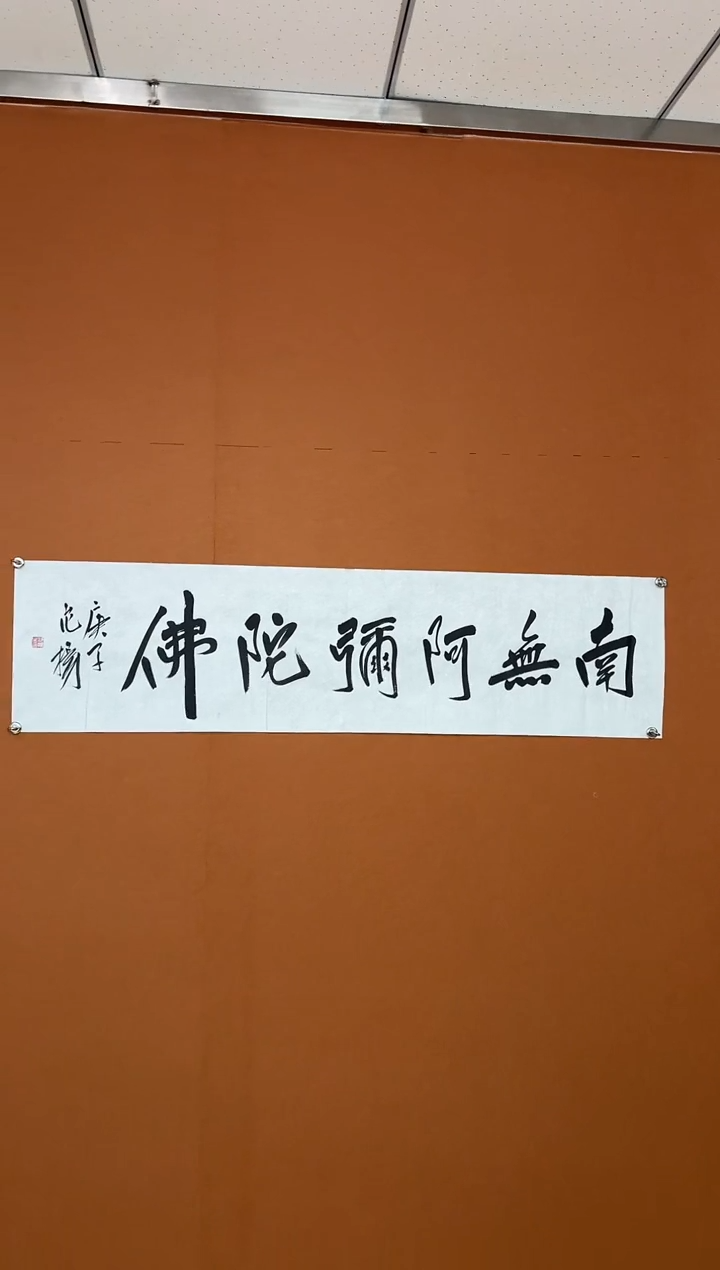 南無阿彌陀佛
庚子